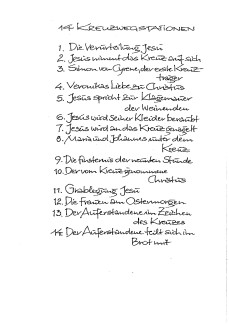 14 KREUZWEGSTATIONEN
1. Die Verurteilung Jesu
2. Jesus nimmt das Kreuz auf sich
3. Simon von Cyrene, der erste Kreuz-
träger
4. Veronikas Liebe zu Christus
5. Jesus spricht zur Klagemauer
der Weinenden
6. Jesus wird seiner Kleider beraubt
7. Jesus wird an das Kreuz genagelt
8. Maria und Johannes unter dem
Kreuz
9. Die Finsternis der neunten Stunde
10. Der vom Kreuz genommene
Christus
11. Grablegung Jesu
12. Die Frauen am Ostermorgen
13. Der Auferstandene im Zeichen
des Kreuzes
14. Der Auferstandene teilt sich im
Brot mit